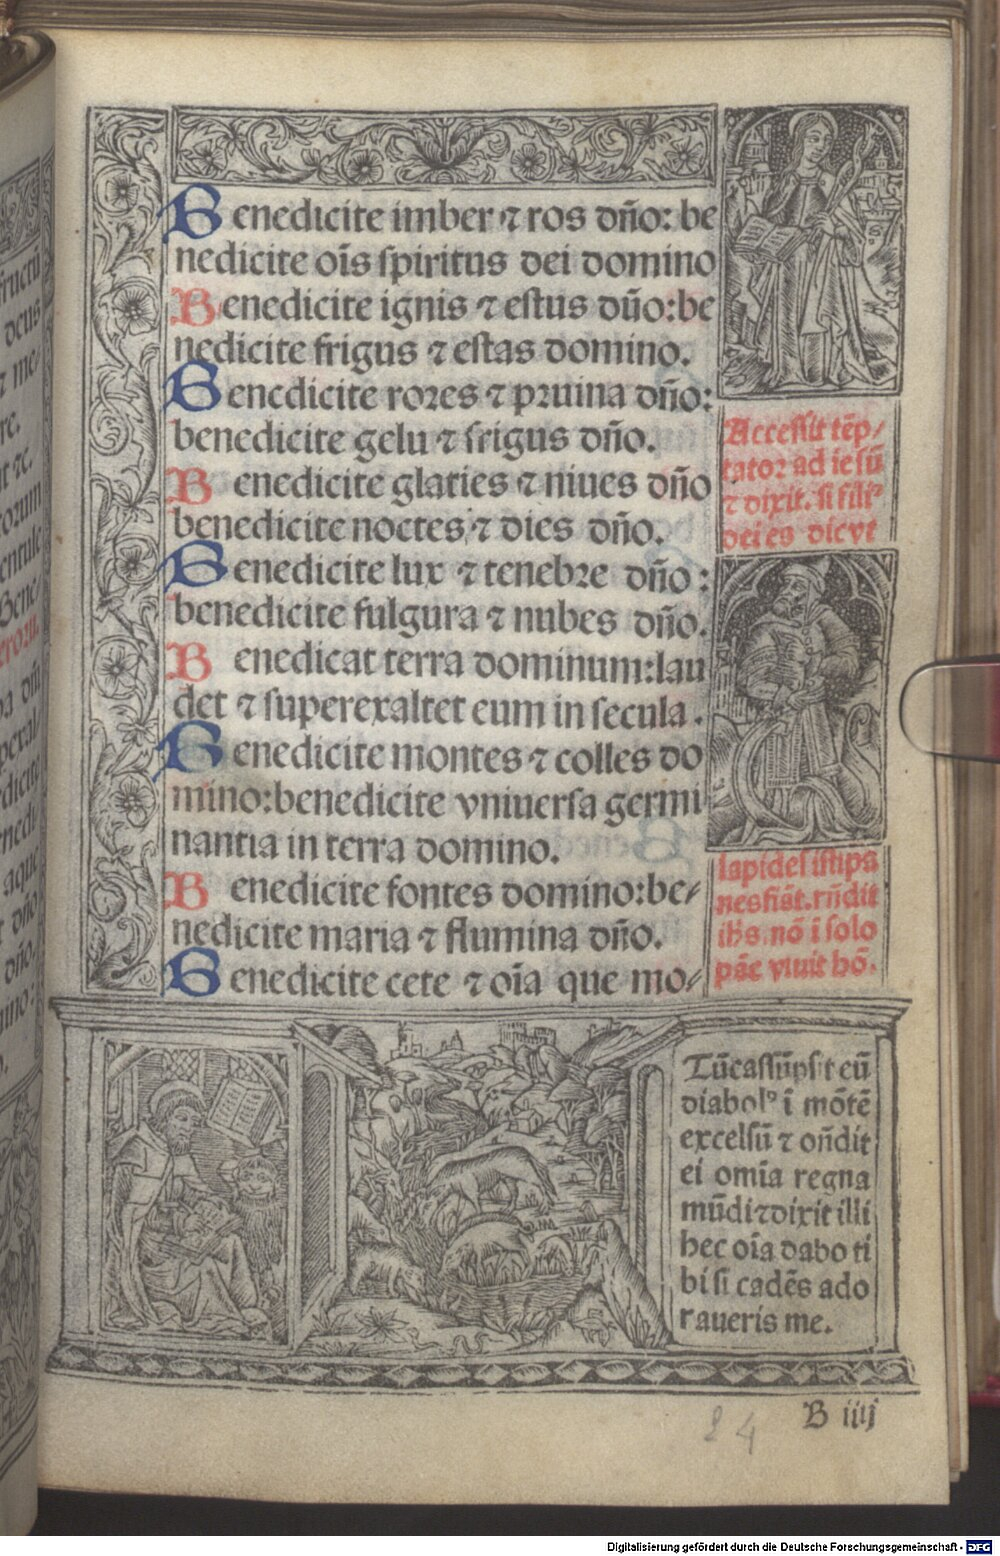 Benedicite imber ⁊ ros dño: be
nedicite oīs spiritus dei domino
Benedicite ignis ⁊ estus dño: be
nedicite frigus ⁊ estas domino.
Benedicite rores ⁊ pruina dño:
benedicite gelu ⁊ frigus dño.
Benedicite glacies ⁊ niues dño
benedicite noctes ⁊ dies dño.
Benedicite lux ⁊ tenebre dño:
benedicite fulgura ⁊ nubes dño.
Benedicat terra dominum: lau
det ⁊ superexaltet eum in secula.
Benedicite montes ⁊ colles do
mino: benedicite vniuersa germi
nantia in terra domino.
Benedicite fontes domino: be/
nedicite maria ⁊ flumina dño.
Benedicite cete ⁊ oīa que mo/
Accessit tēp/
tator ad iesū
⁊ dixit. si filiꝰ
dei es dic vt
lapides isti pa
nes fiāt. rñdit
ihs. nō ī solo
pāe viuit hō.
Tūc assūpsit eū
diabolꝰ ī mōtē
excelsū ⁊ oñdit
ei omīa regna
mūdi ⁊ dixit illi
hec oīa dabo ti
bi si cadēs ado
raueris me.
B iiij
24
Digitalisierung gefördert durch die Deutsche Forschungsgemeinschaft - DFG